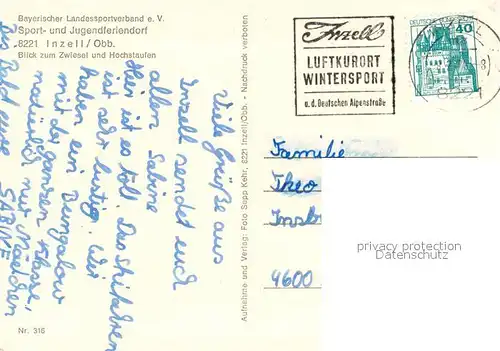 Bayerischer Landessportverband e. V.
Sport- und Jugendferiendorf
8221 Inzell/Obb.
Blick zum Zwiesel und Hochstaufen
Viele Grüße aus
Inzell sendet euch
allen Sabine
Hier ist es toll. Das Skifahren
ist sehr lustig. Wir
haben ein Bungalow
mit der ganzen Klasse,
natürlich mit Mädchen
Bis bald eure SABINE
Nr. 316
Aufnahme und Verlag: Foto Supp Kehr, 8221 Inzell/Obb. - Nachdruck verboten
Inzell
LUFTKURORT
WINTERSPORT
a. d. Deutschen Alpenstraße
DEUTSCHE
40
INZELL
8221
Familie
Theo
Insb
4600
privacy protection
Datenschutz